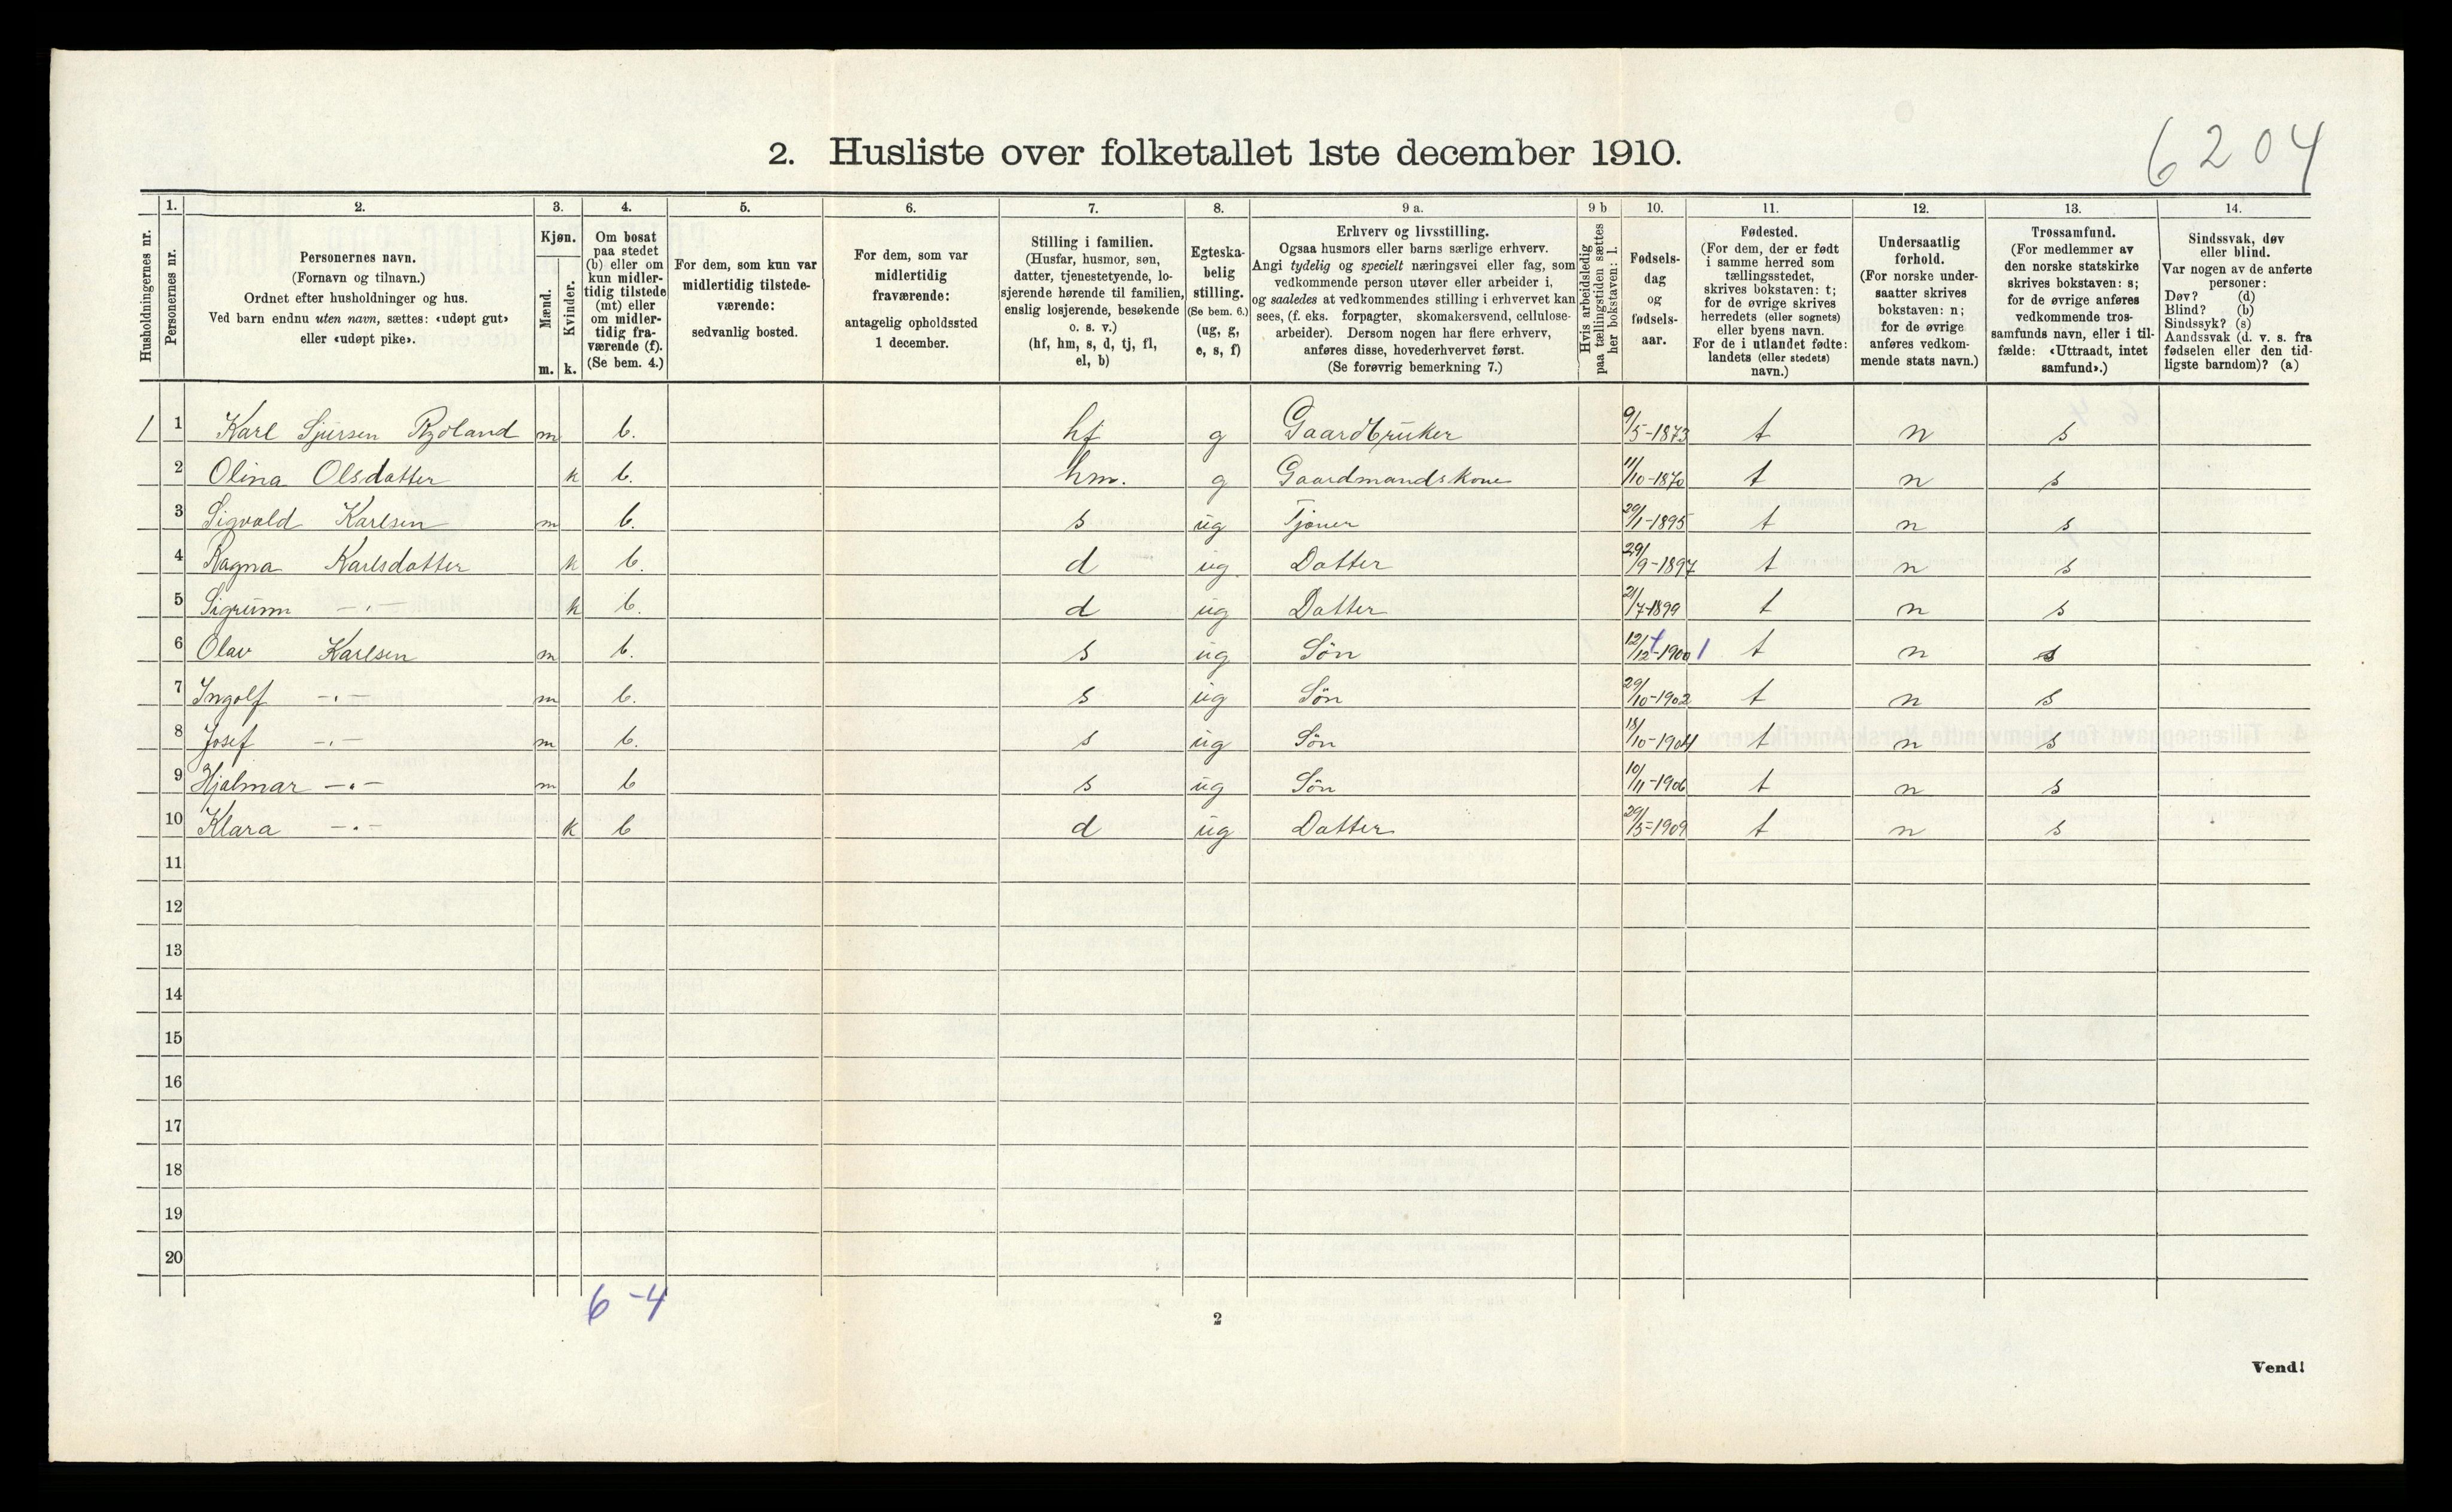 6204
2. Husliste over folketallet 1ste december 1910.
Husholdningernes nr.
1.
Personernes nr.
2.
Personernes navn.
(Fornavn og tilnavn.)
Ordnet efter husholdninger og hus.
Ved barn endnu uten navn, sættes: «udøpt gut»
eller «udøpt pike».
3.
Kjøn.
Mænd.
Kvinder.
m.
k.
4.
Om bosat
paa stedet
(b) eller om
kun midler-
tidig tilstede
(mt) eller
om midler-
tidig fra-
værende (f).
(Se bem. 4.)
5.
For dem, som kun var
midlertidig tilstede-
værende:
sedvanlig bosted.
6.
For dem, som var
midlertidig
fraværende:
antagelig opholdssted
1 december.
7.
Stilling i familien.
(Husfar, husmor, søn,
datter, tjenestetyende, lo-
sjerende hørende til familien,
enslig losjerende, besøkende
o. s. v.)
(hf, hm, s, d, tj, fl,
el, b)
8.
Egteska-
belig
stilling.
(Se bem. 6.)
(ug, g,
e, s, f)
9 a.
Erhverv og livsstilling.
Ogsaa husmors eller barns særlige erhverv.
Angi tydelig og specielt næringsvei eller fag, som
vedkommende person utøver eller arbeider i,
og saaledes at vedkommendes stilling i erhvervet kan
sees, (f. eks. forpagter, skomakersvend, cellulose-
arbeider). Dersom nogen har flere erhverv,
anføres disse, hovederhvervet først.
(Se forøvrig bemerkning 7.)
9 b
Hvis arbeidsledig
paa tællingstiden sættes
her bokstaven: l.
10.
Fødsels-
dag
og
fødsels-
aar.
11.
Fødested.
(For dem, der er født
i samme herred som
tællingsstedet,
skrives bokstaven: t;
for de øvrige skrives
herredets (eller sognets)
eller byens navn.
For de i utlandet fødte:
landets (eller stedets)
navn.)
12.
Undersaatlig
forhold.
(For norske under-
saatter skrives
bokstaven: n;
for de øvrige
anføres vedkom-
mende stats navn.)
13.
Trossamfund.
(For medlemmer av
den norske statskirke
skrives bokstaven: s;
for de øvrige anføres
vedkommende tros-
samfunds navn, eller i til-
fælde: «Uttraadt, intet
samfund».)
14.
Sindssvak, døv
eller blind.
Var nogen av de anførte
personer:
Døv? (d)
Blind? (b)
Sindssyk? (s)
Aandssvak (d. v. s. fra
fødselen eller den tid-
ligste barndom)? (a)
1 1 Karl Sjursen Rydland m b. hf g Gaardbruker 9/5-1873 t n s
2 Olina Olsdatter k b. hm. g Gaardmandskone 11/10-1870 t n s
3 Sigvald Karlsen m b. s ug Tjener 29/1-1895 t n s
4 Ragna Karlsdatter k b. d ug Datter 29/9-1897 t n s
5 Sigrunn -"- k b. d ug Datter 21/7-1899 t n s
6 Olav Karlsen m b. s ug Søn 12/12-1900 1 t n s
7 Ingolf -"- m b. s ug Søn 29/10-1902 t n s
8 Josef -"- m b. s ug Søn 18/10-1904 t n s
9 Hjalmar -"- m b s ug Søn 10/11-1906 t n s
10 Klara -"- k b d ug Datter 29/5-1909 t n s
11
12
13
14
15
16
17
18
19
20
6-4
2
Vend!